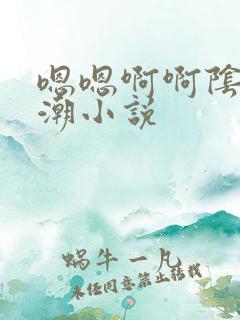 嗯嗯啊啊陰
潮小説
蝸牛一凡
未经同意禁止转载